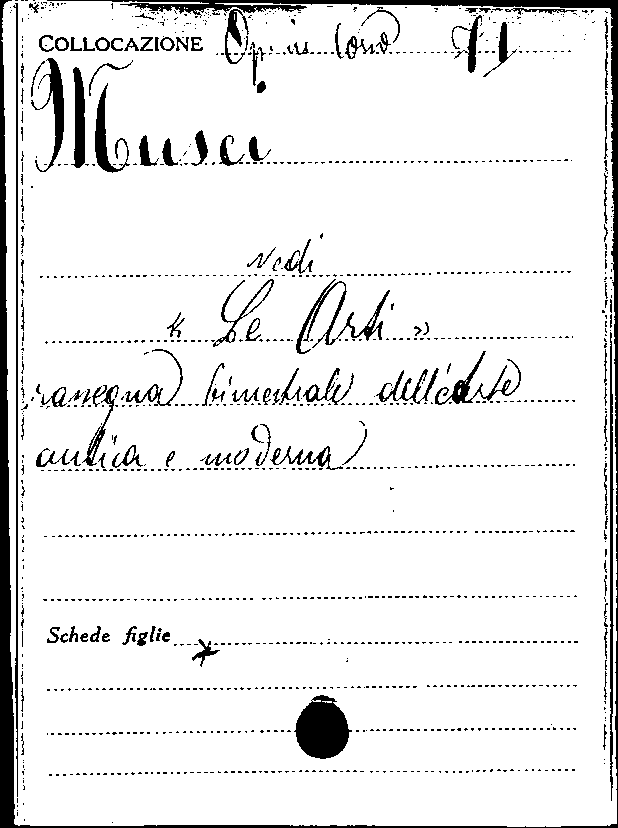 COLLOCAZIONE Op. in corso 71
Musei
vedi
« Le Arti »
rassegna bimestrale dell'arte
antica e moderna
Schede figlie